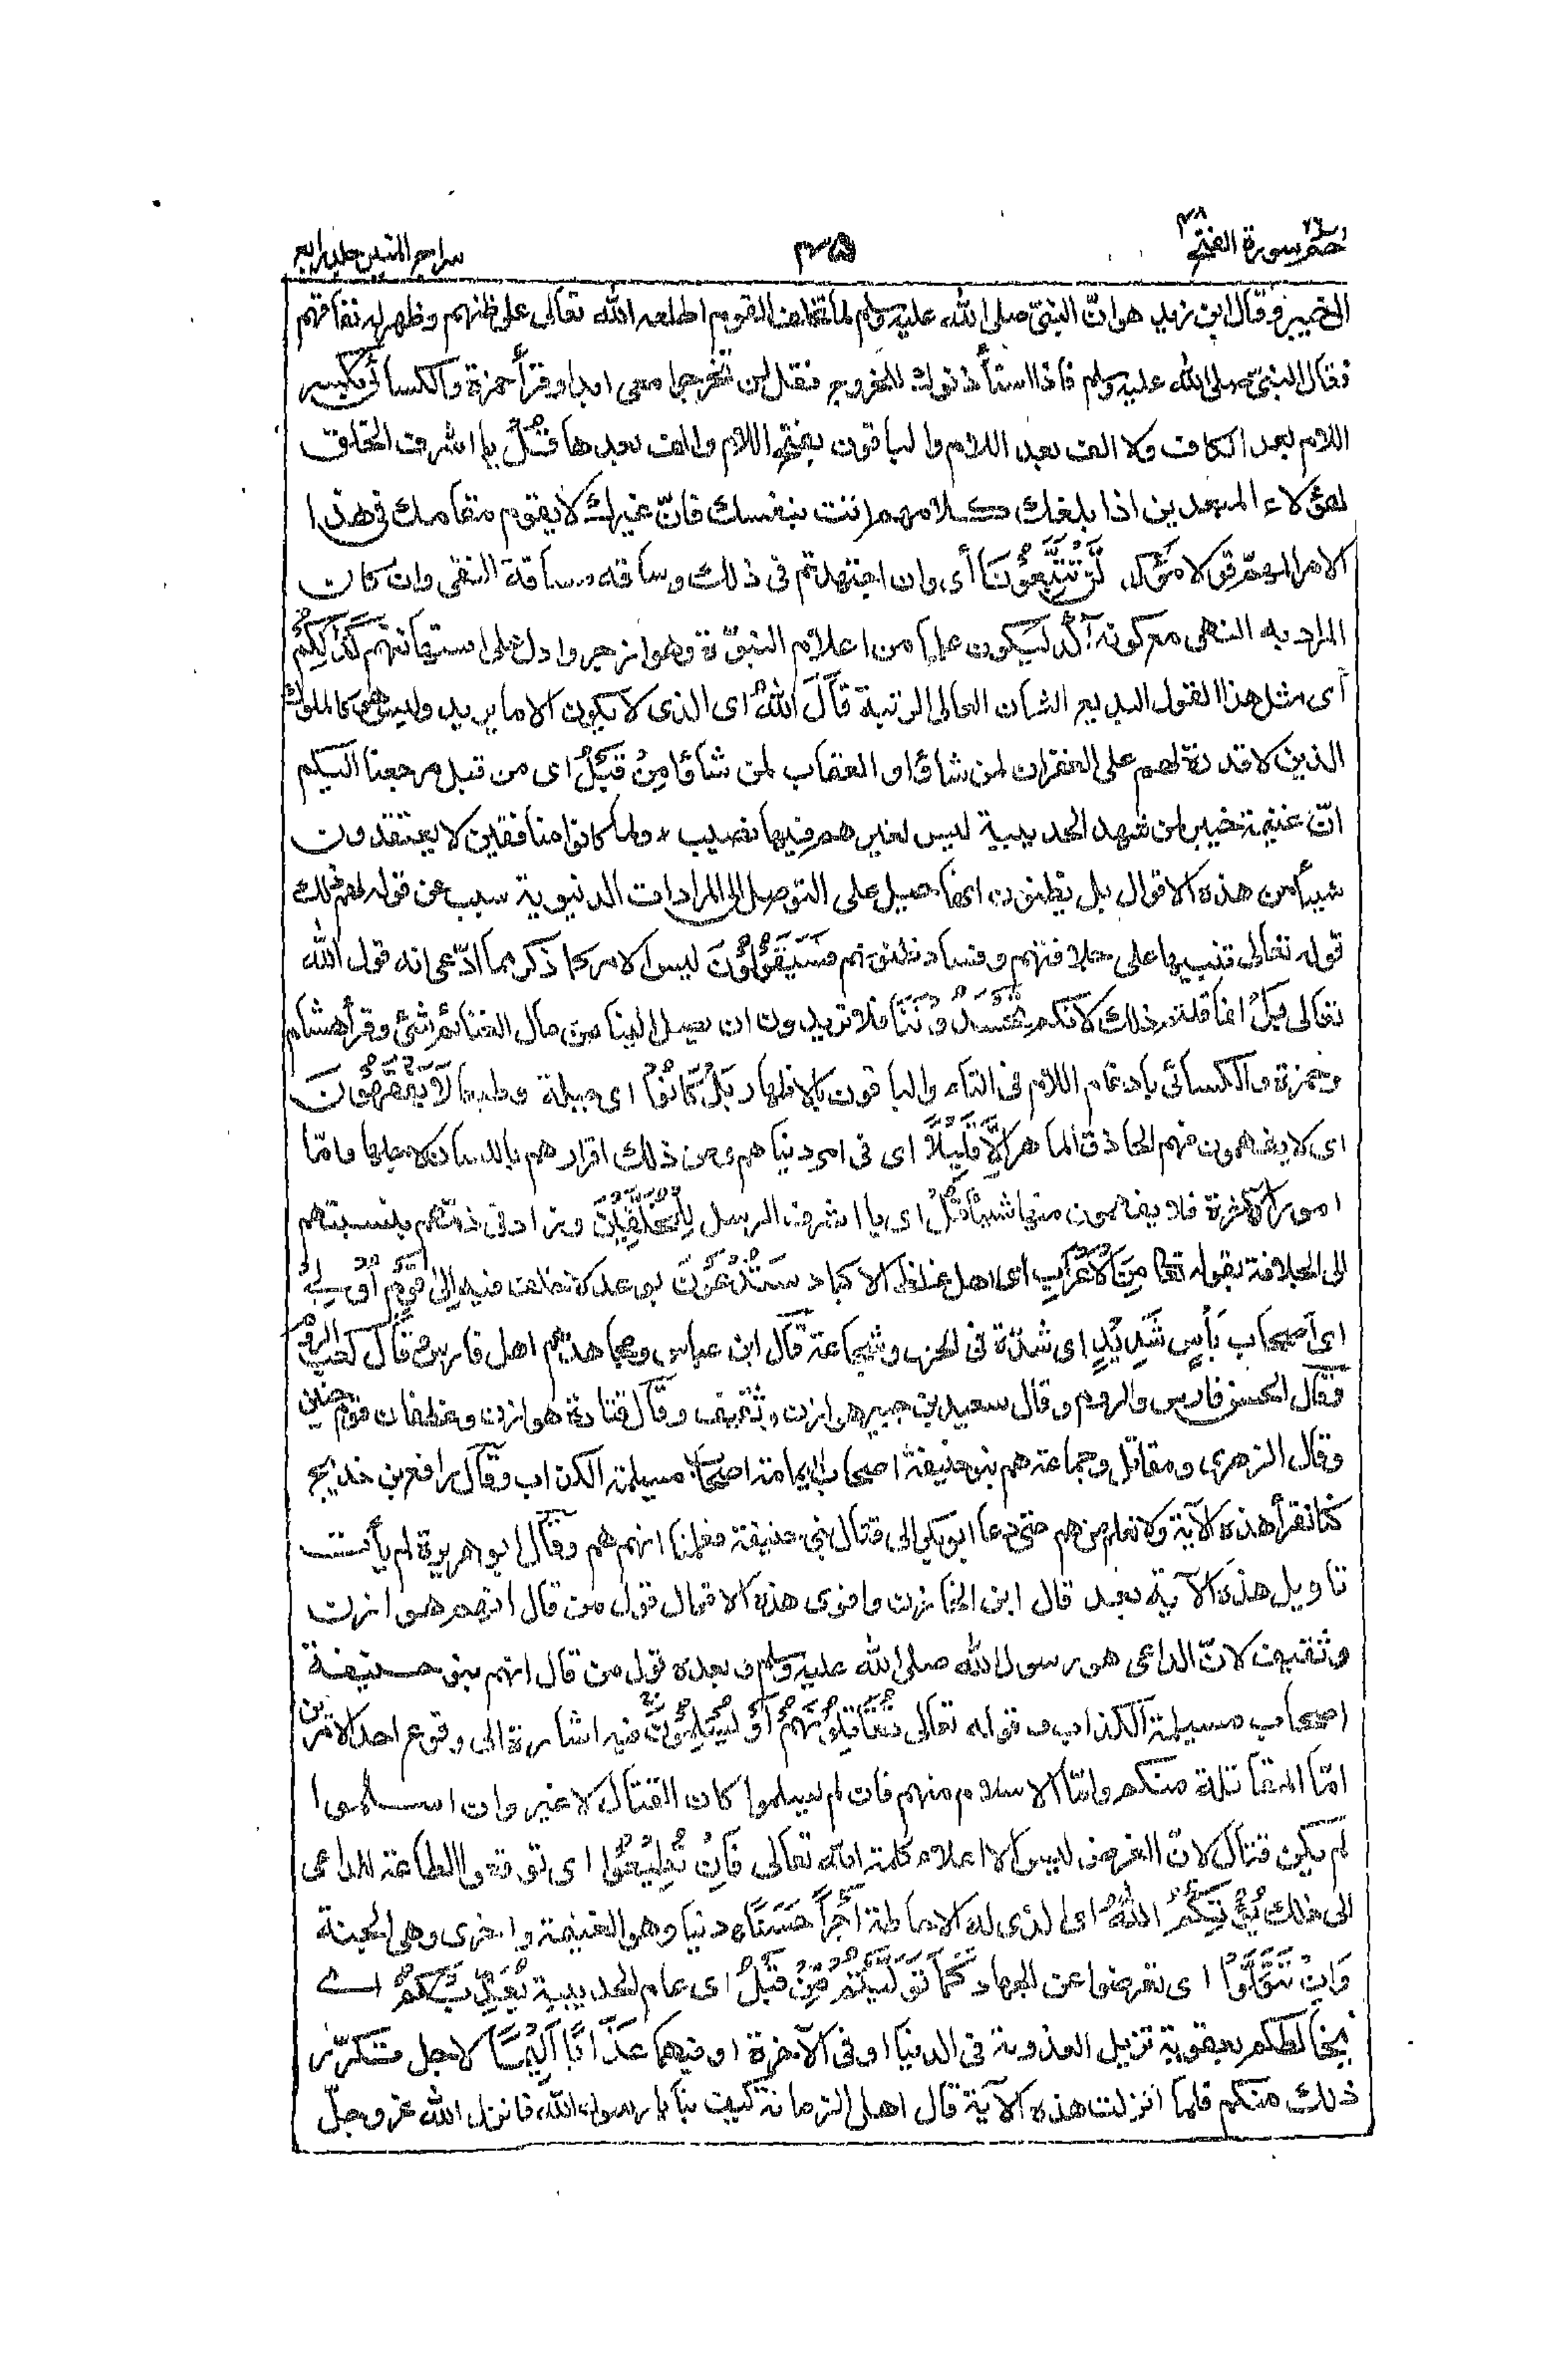 حم٢٦ سورة الفتح ٤٨ ٣٥ سراج المنير جلد رابع
الى خيبر وقال ابن زيد هو انّ النبىّ صلى الله عليه وسلم لما تخلف القوم اطلعه الله تعالى على ظنهم وظهر له نفاقهم
فقال للنبىّ صلى الله عليه وسلم فاذا استأذنوك للخروج فقل لن تخرجوا معى ابدا وقرأ حمزة والكسائى بكسر
اللام بعد الكاف ولا الف بعد اللام والباقون بفتح اللام والف بعدها قُلْ يا اشرف الخلق
لهؤلاء المبعدين اذا بلغك كلامهم انت بنفسك فانّ غيرك لا يقوم مقامك فى هذا
الامر المهم قولا مؤكدا لَّنْ تَتَّبِعُوْنَا أى وان اجتهدتم فى ذلك وساقه مساق النفى وان كان
المراد به النهى مع كونه آكد ليكون علما من اعلام النبوّة وهو ازجر وادل على استهانتهم كَذٰلِكُمْ
أى مثل هذا القول البديع الشأن العالى الرتبة قَالَ اللّٰهُ اى الذى لا يكون الا ما يريد وليس هو كالملوك
الذين لا قدرة لهم على الغفران لمن شاؤا والعقاب لمن شاؤا مِنْ قَبْلُ اى من قبل مرجعنا اليكم
انّ غنيمة خيبر لمن شهد الحديبية ليس لغيرهم فيها نصيب ولما كانوا منافقين لا يعتقدون
شيأ من هذه الاقوال بل يظنون انها حيل على التوصل الى المرادات الدنيوية سبب عن قوله لهم ذلك
قوله تعالى تنبيها على جلافتهم وفساد ظنونهم فَسَيَقُوْلُوْنَ ليس الامر كما ذكر مما ادّعى انه قول الله
تعالى بَلْ انما قلتم ذلك لانكم تَحْسُدُوْنَنَا فلا تريدون ان يصل الينا من مال الغنائم شئ وقرأ هشام
وحمزة والكسائى بادغام اللام فى التاء والباقون بالاظهار بَلْ كَانُوْا اى جبلة وطبعا لَا يَفْقَهُوْنَ
اى لا يفهمون فهم الحاذق الماهر اِلَّا قَلِيْلًا اى فى امر دنياهم ومن ذلك اقرارهم باللسان لاجلها وامّا
امور الآخرة فلا يفهمون منها شيأ قُلْ اى يا اشرف الرسل لِلْمُخَلَّفِيْنَ وزاد فى ذمّهم بنسبتهم
الى الجلافة بقوله تعالى مِنَ الْاَعْرَابِ اى اهل غلظ الاكباد سَتُدْعَوْنَ بوعد لا تخلف فيه اِلٰى قَوْمٍ اُوْلِيْ
اى اصحاب بَأْسٍ شَدِيْدٍ اى شدّة فى الحرب وشجاعة قال ابن عباس ومجاهد هم اهل فارس وقال كعب الروم
وقال الحسن فارس والروم وقال سعيد بن جبير هوازن وثقيف وقال قتادة هوازن وغطفان قوم حنين
وقال الزهرى ومقاتل وجماعة هم بنو حنيفة اصحاب اليمامة اصحاب مسيلمة الكذاب وقال رافع بن خديج
كنا نقرأ هذه الآية ولا نعلم من هم حتى دعا ابو بكر الى قتال بنى حنيفة فعلمنا انهم هم وقال ابو هريرة لم يأت
تاويل هذه الآية بعد قال ابن الخازن واقوى هذه الاقوال قول من قال انهم هوازن
وثقيف لانّ الداعى هو رسول الله صلى الله عليه وسلم وبعده قول من قال انهم بنو حنيفة
اصحاب مسيلمة الكذاب وقوله تعالى تُقَاتِلُوْنَهُمْ اَوْ يُسْلِمُوْنَ فيه اشارة الى وقوع احد الامرين
امّا المقاتلة منكم وامّا الاسلام منهم فان لم يسلموا كان القتال لا غير وان اسلموا
لم يكن قتال لانّ الغرض ليس الا اعلاء كلمة الله تعالى فَاِنْ تُطِيْعُوْا اى توقعوا الطاعة للداعى
الى ذلك يُؤْتِكُمُ اللّٰهُ اى الذى له الاحاطة اَجْرًا حَسَنًا دنيا وهو الغنيمة واخرى وهى الجنة
وَاِنْ تَتَوَلَّوْا اى تعرضوا عن الجهاد كَمَا تَوَلَّيْتُمْ مِّنْ قَبْلُ اى عام الحديبية يُعَذِّبْكُمْ اى
يخالطكم بعقوبة تزيل العذوبة فى الدنيا او فى الآخرة او فيهما عَذَابًا اَلِيْمًا لاجل تكرّر
ذلك منكم فلما انزلت هذه الآية قال اهل الزمانة كيف بنا يا رسول الله فانزل الله عز وجلّ